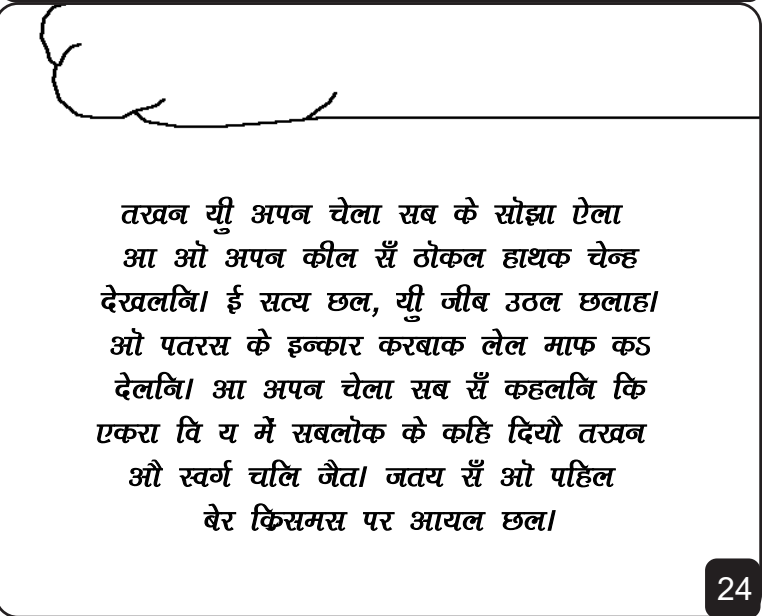 तखन यीु अपन चेला सब के सॊझा ऐला
आ ऒ अपन कील सँ ठॊकल हाथक चेन्ह
देखलनि। ई सत्य छल, यीु जीब उठल छलाह।
ऒ पतरस के इन्कार करबाक लेल माफ कऽ
देलनि। आ अपन चेला सब सँ कहलनि कि
एकरा वि य में सबलॊक के कहि दियौ तखन
औ स्वर्ग चलि जैत। जतय सँ ऒ पहिल
बेर क्रिसमस पर आयल छल।
24